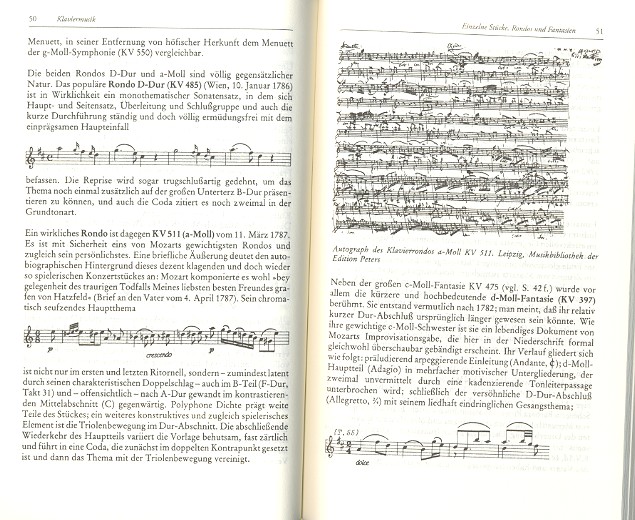 50 Klaviermusik
Menuett, in seiner Entfernung von höfischer Herkunft dem Menuett
der g-Moll-Symphonie (KV 550) vergleichbar.
Die beiden Rondos D-Dur und a-Moll sind völlig gegensätzlicher
Natur. Das populäre Rondo D-Dur (KV 485) (Wien, 10. Januar 1786)
ist in Wirklichkeit ein monothematischer Sonatensatz, in dem sich
Haupt- und Seitensatz, Überleitung und Schlußgruppe und auch die
kurze Durchführung ständig und doch völlig ermüdungsfrei mit dem
einprägsamen Haupteinfall
befassen. Die Reprise wird sogar trugschlußartig gedehnt, um das
Thema noch einmal zusätzlich auf der großen Unterterz B-Dur präsen-
tieren zu können, und auch die Coda zitiert es noch zweimal in der
Grundtonart.
Ein wirkliches Rondo ist dagegen KV 511 (a-Moll) vom 11. März 1787.
Es ist mit Sicherheit eins von Mozarts gewichtigsten Rondos und
zugleich sein persönlichstes. Eine briefliche Äußerung deutet den auto-
biographischen Hintergrund dieses dezent klagenden und doch wieder
so spielerischen Konzertstückes an: Mozart komponierte es wohl »bey
gelegenheit des traurigen Todfalls Meines liebsten besten Freundes gra-
fen von Hatzfeld« (Brief an den Vater vom 4. April 1787). Sein chroma-
tisch seufzendes Hauptthema
p crescendo p
ist nicht nur im ersten und letzten Ritornell, sondern – zumindest latent
durch seinen charakteristischen Doppelschlag – auch im B-Teil (F-Dur,
Takt 31) und – offensichtlich – nach A-Dur gewandt im kontrastieren-
den Mittelabschnitt (C) gegenwärtig. Polyphone Dichte prägt weite
Teile des Stückes; ein weiteres konstruktives und zugleich spielerisches
Element ist die Triolenbewegung im Dur-Abschnitt. Die abschließende
Wiederkehr des Hauptteils variiert die Vorlage behutsam, fast zärtlich
und führt in eine Coda, die zunächst im doppelten Kontrapunkt gesetzt
ist und dann das Thema mit der Triolenbewegung vereinigt.
Einzelne Stücke, Rondos und Fantasien 51
Autograph des Klavierrondos a-Moll KV 511. Leipzig, Musikbibliothek der
Edition Peters
Neben der großen c-Moll-Fantasie KV 475 (vgl. S. 42 f.) wurde vor
allem die kürzere und hochbedeutende d-Moll-Fantasie (KV 397)
berühmt. Sie entstand vermutlich nach 1782; man meint, daß ihr relativ
kurzer Dur-Abschluß ursprünglich länger gewesen sein könnte. Wie
ihre gewichtige c-Moll-Schwester ist sie ein lebendiges Dokument von
Mozarts Improvisationsgabe, die hier in der Niederschrift formal
gleichwohl überschaubar gebändigt erscheint. Ihr Verlauf gliedert sich
wie folgt: präludierend arpeggierende Einleitung (Andante, ¢); d-Moll-
Hauptteil (Adagio) in mehrfacher motivischer Untergliederung, der
zweimal unvermittelt durch eine kadenzierende Tonleiterpassage
unterbrochen wird; schließlich der versöhnliche D-Dur-Abschluß
(Allegretto, ²/₄) mit seinem liedhaft eindringlichen Gesangsthema;
(T. 55)
dolce